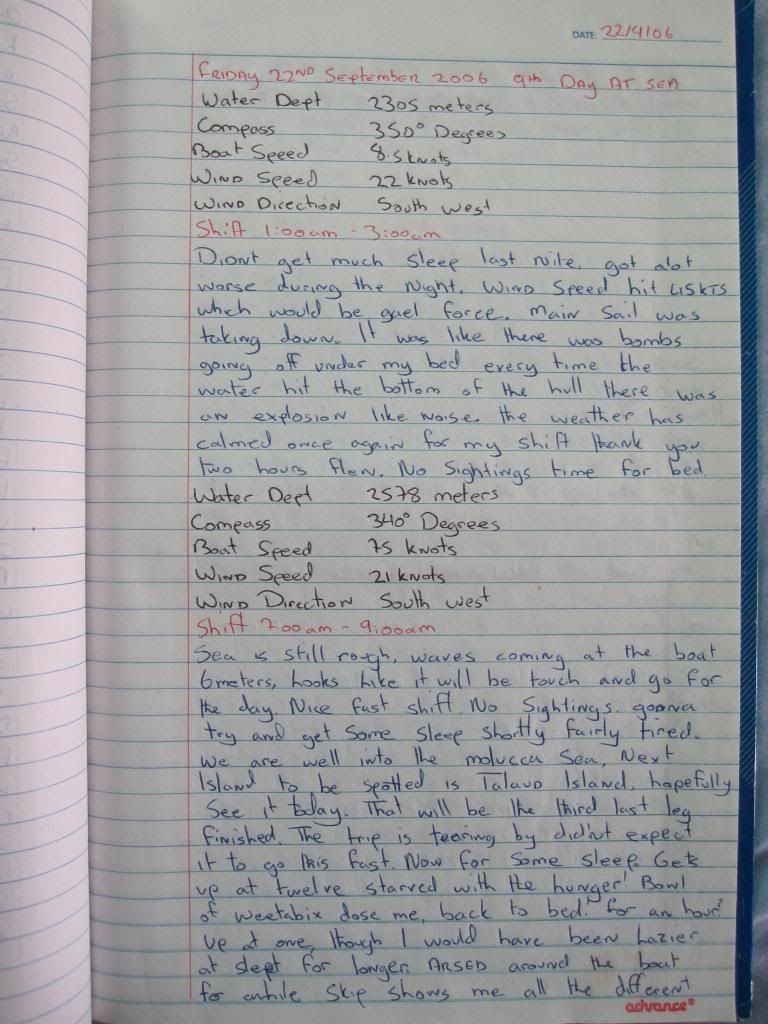 DATE: 22/9/06
FRIDAY 22ND September 2006 9th Day AT SEA
Water Dept 2305 meters
Compass 350° Degrees
Boat Speed 8.5 knots
WIND Speed 22 knots
WIND Direction South West
Shift 1:00am - 3:00am
Didnt get much sleep last nite. got alot
worse during the night. WIND Speed hit 45KTS
which would be gael force. Main Sail was
taking down. It was like there was bombs
going off under my bed every time the
water hit the bottom of the hull there was
an explosion like noise. the weather has
calmed once again for my shift thank you
two hours flew. No Sightings time for bed.
Water Dept 2578 meters
Compass 340° Degrees
Boat Speed 75 knots
WIND Speed 21 knots
WIND Direction South West
Shift 7:00am - 9:00am
Sea is still rough, waves coming at the boat
6meters, Looks Like it will be touch and go for
the day. Nice fast shift. No Sightings. goona
try and get Some Sleep shortly fairly tired.
We are well into the molucca Sea, Next
Island to be spotted is Talaud Island, hopefully
See it today. That will be the third last leg
finished. The trip is tearing by didnt expect
it to go this fast. Now for Some Sleep. Gets
up at twelve starved with the hunger! Bowl
of weetabix dose me, back to bed! for an hour!
Up at one, though I would have been Lazier
at slept for longer. ARSED around the boat
for awhile Skip Shows me all the different
advance®